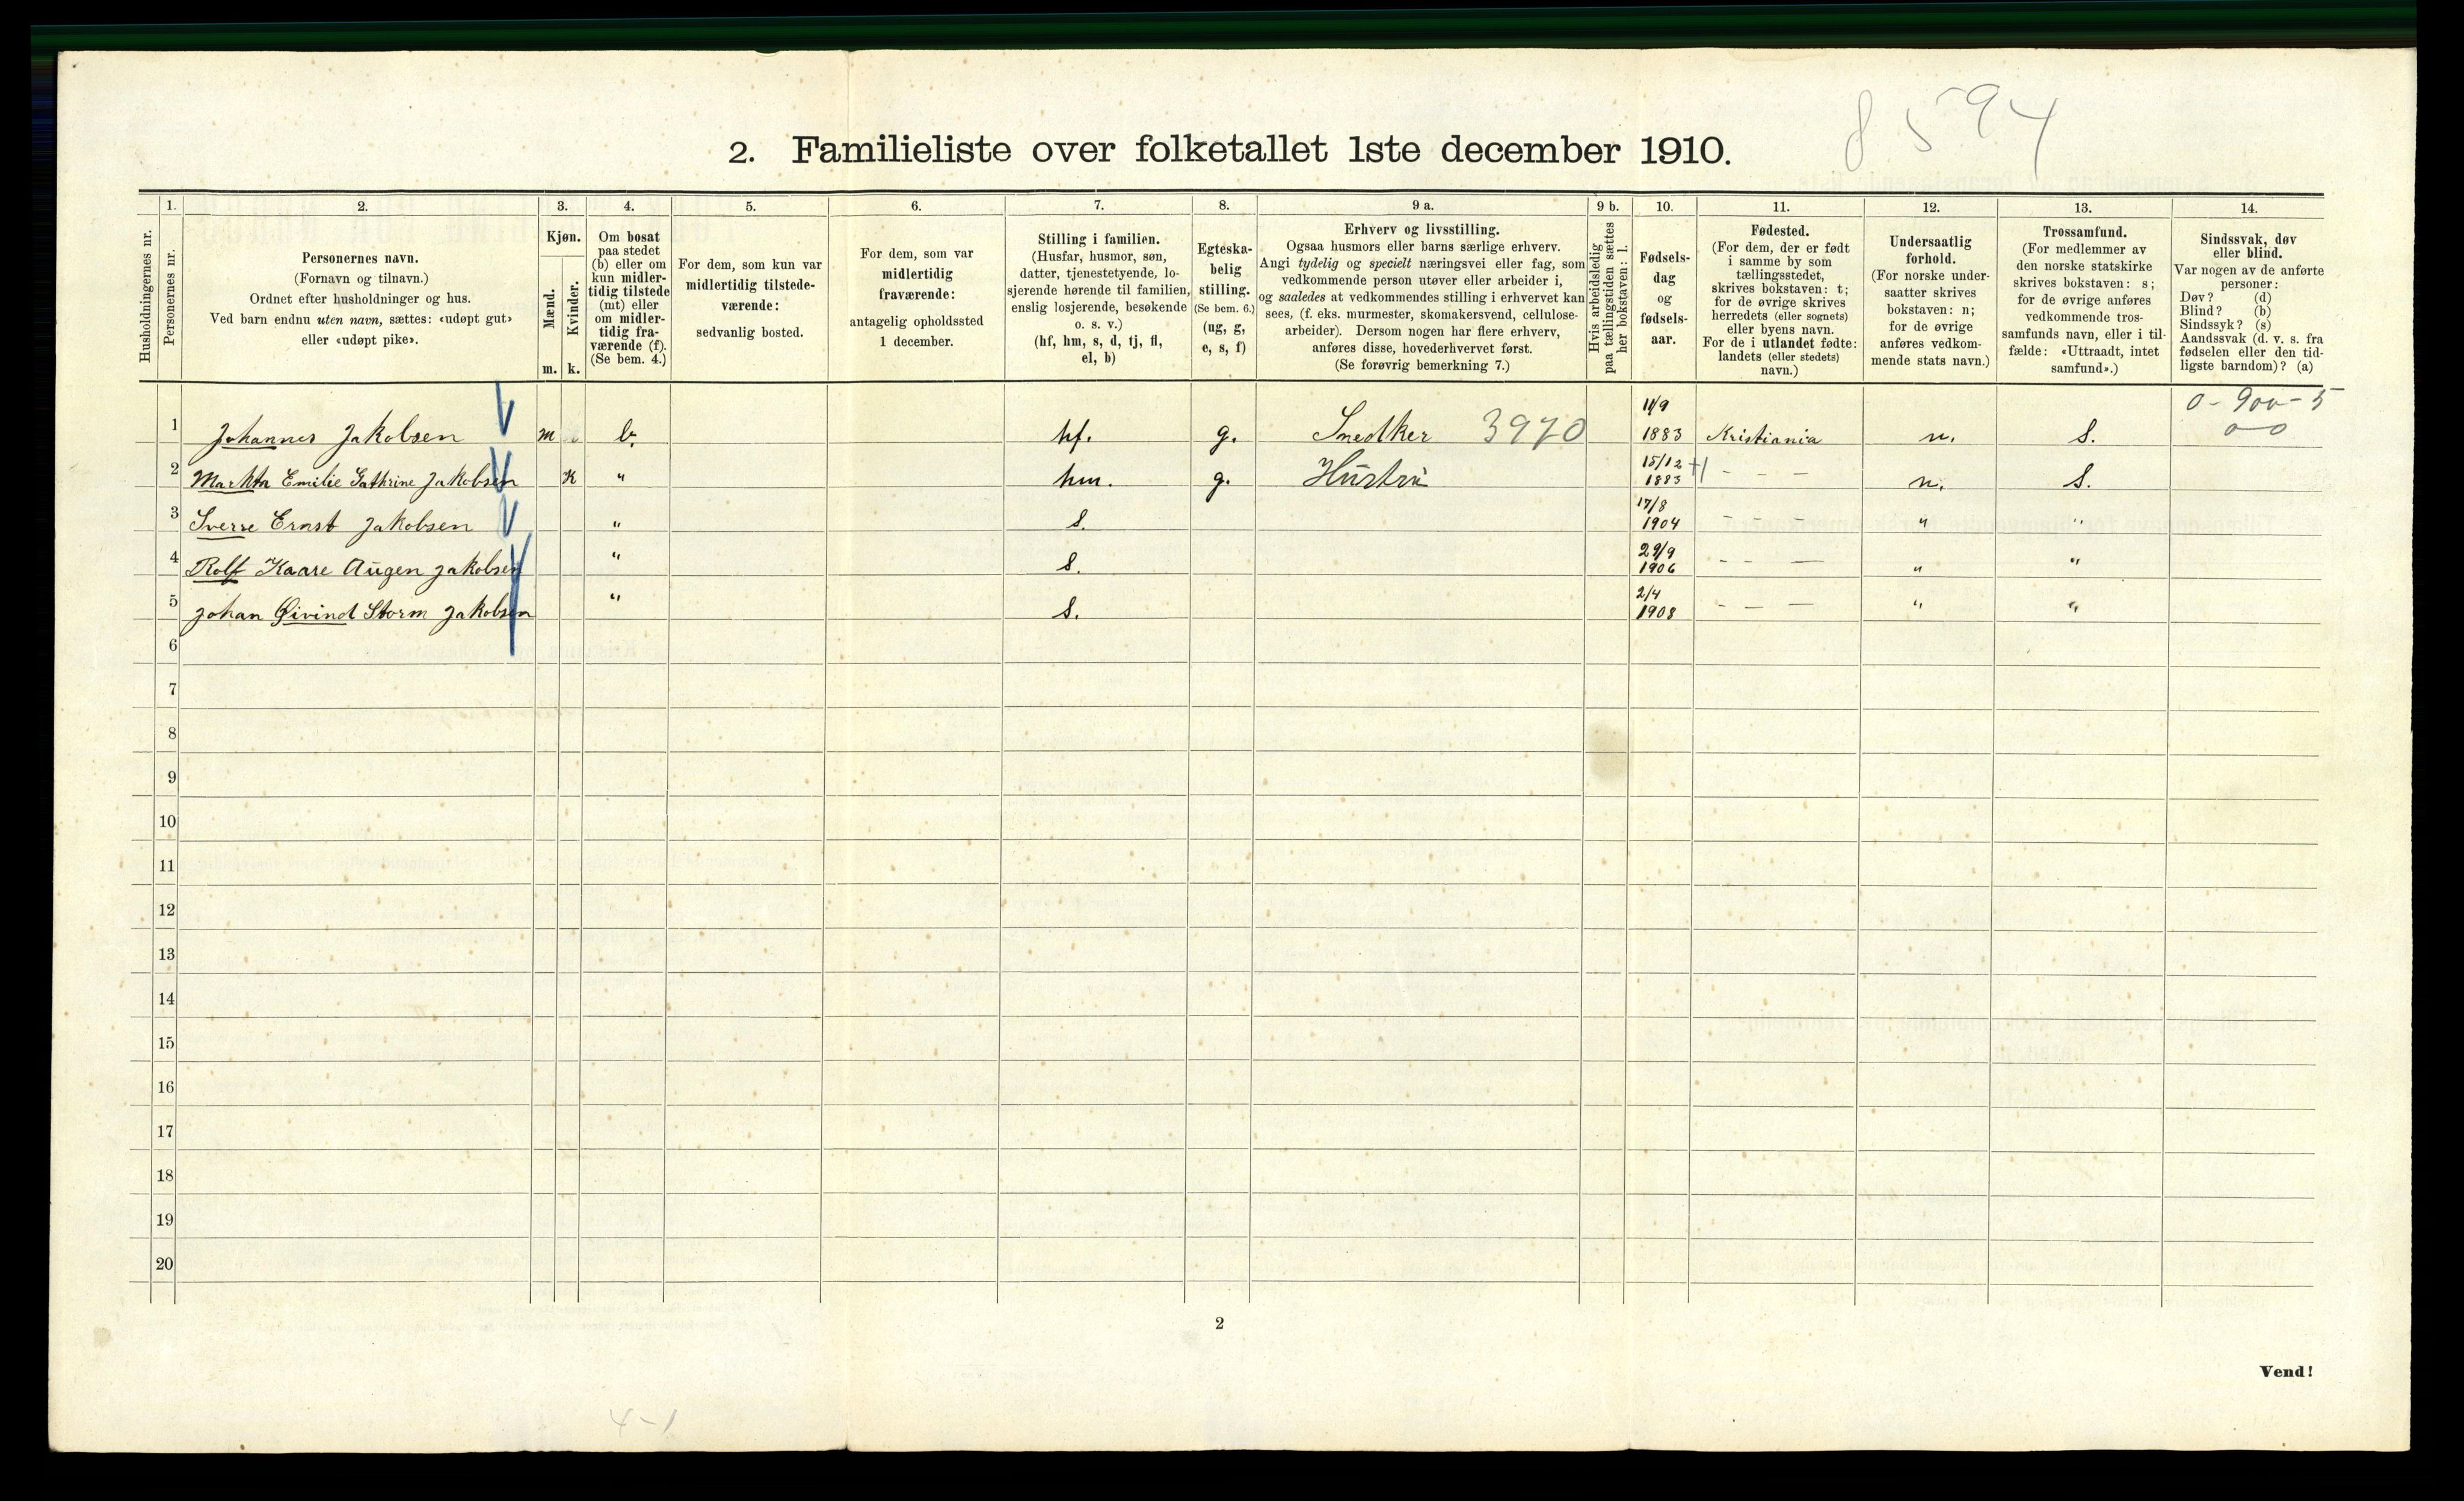 8594
2. Familieliste over folketallet 1ste december 1910.
Husholdningernes nr.
1.
Personernes nr.
2.
Personernes navn.
(Fornavn og tilnavn.)
Ordnet efter husholdninger og hus.
Ved barn endnu uten navn, sættes: «udøpt gut»
eller «udøpt pike».
3.
Kjøn.
Mænd.
Kvinder.
m. k.
4.
Om bosat
paa stedet
(b) eller om
kun midler-
tidig tilstede
(mt) eller
om midler-
tidig fra-
værende (f).
(Se bem. 4.)
5.
For dem, som kun var
midlertidig tilstede-
værende:
sedvanlig bosted.
6.
For dem, som var
midlertidig
fraværende:
antagelig opholdssted
1 december.
7.
Stilling i familien.
(Husfar, husmor, søn,
datter, tjenestetyende, lo-
sjerende hørende til familien,
enslig losjerende, besøkende
o. s. v.)
(hf, hm, s, d, tj, fl,
el, b)
8.
Egteska-
belig
stilling.
(Se bem. 6.)
(ug, g,
e, s, f)
9 a.
Erhverv og livsstilling.
Ogsaa husmors eller barns særlige erhverv.
Angi tydelig og specielt næringsvei eller fag, som
vedkommende person utøver eller arbeider i,
og saaledes at vedkommendes stilling i erhvervet kan
sees, (f. eks. murmester, skomakersvend, cellulose-
arbeider). Dersom nogen har flere erhverv,
anføres disse, hovederhvervet først.
(Se forøvrig bemerkning 7.)
9 b.
Hvis arbeidsledig
paa tællingstiden sættes
her bokstaven: l.
10.
Fødsels-
dag
og
fødsels-
aar.
11.
Fødested.
(For dem, der er født
i samme by som
tællingsstedet,
skrives bokstaven: t;
for de øvrige skrives
herredets (eller sognets)
eller byens navn.
For de i utlandet fødte:
landets (eller stedets)
navn.)
12.
Undersaatlig
forhold.
(For norske under-
saatter skrives
bokstaven: n;
for de øvrige
anføres vedkom-
mende stats navn.)
13.
Trossamfund.
(For medlemmer av
den norske statskirke
skrives bokstaven: s;
for de øvrige anføres
vedkommende tros-
samfunds navn, eller i til-
fælde: «Uttraadt, intet
samfund».)
14.
Sindssvak, døv
eller blind.
Var nogen av de anførte
personer:
Døv? (d)
Blind? (b)
Sindssyk? (s)
Aandssvak (d. v. s. fra
fødselen eller den tid-
ligste barndom)? (a)
0-900-5
0-0
1 Johannes Jakobsen m b. hf. g. Snedker 3970 11/9 1883 Kristiania n. S.
2 Emilie Jakobsen K " hm. g. Hüstrü 15/12 1883 - - - n. S.
3 Sverre Ernst Jakobsen " S. 17/8 1904 - - - " "
4 Rolf Kaare Aŭgen Jakobsen " S. 29/9 1906 - - - " "
5 Johan Øivind Storm Jakobsen " S. 2/4 1908 - - - " "
6
7
8
9
10
11
12
13
14
15
16
17
18
19
20
2
Vend!
4-1